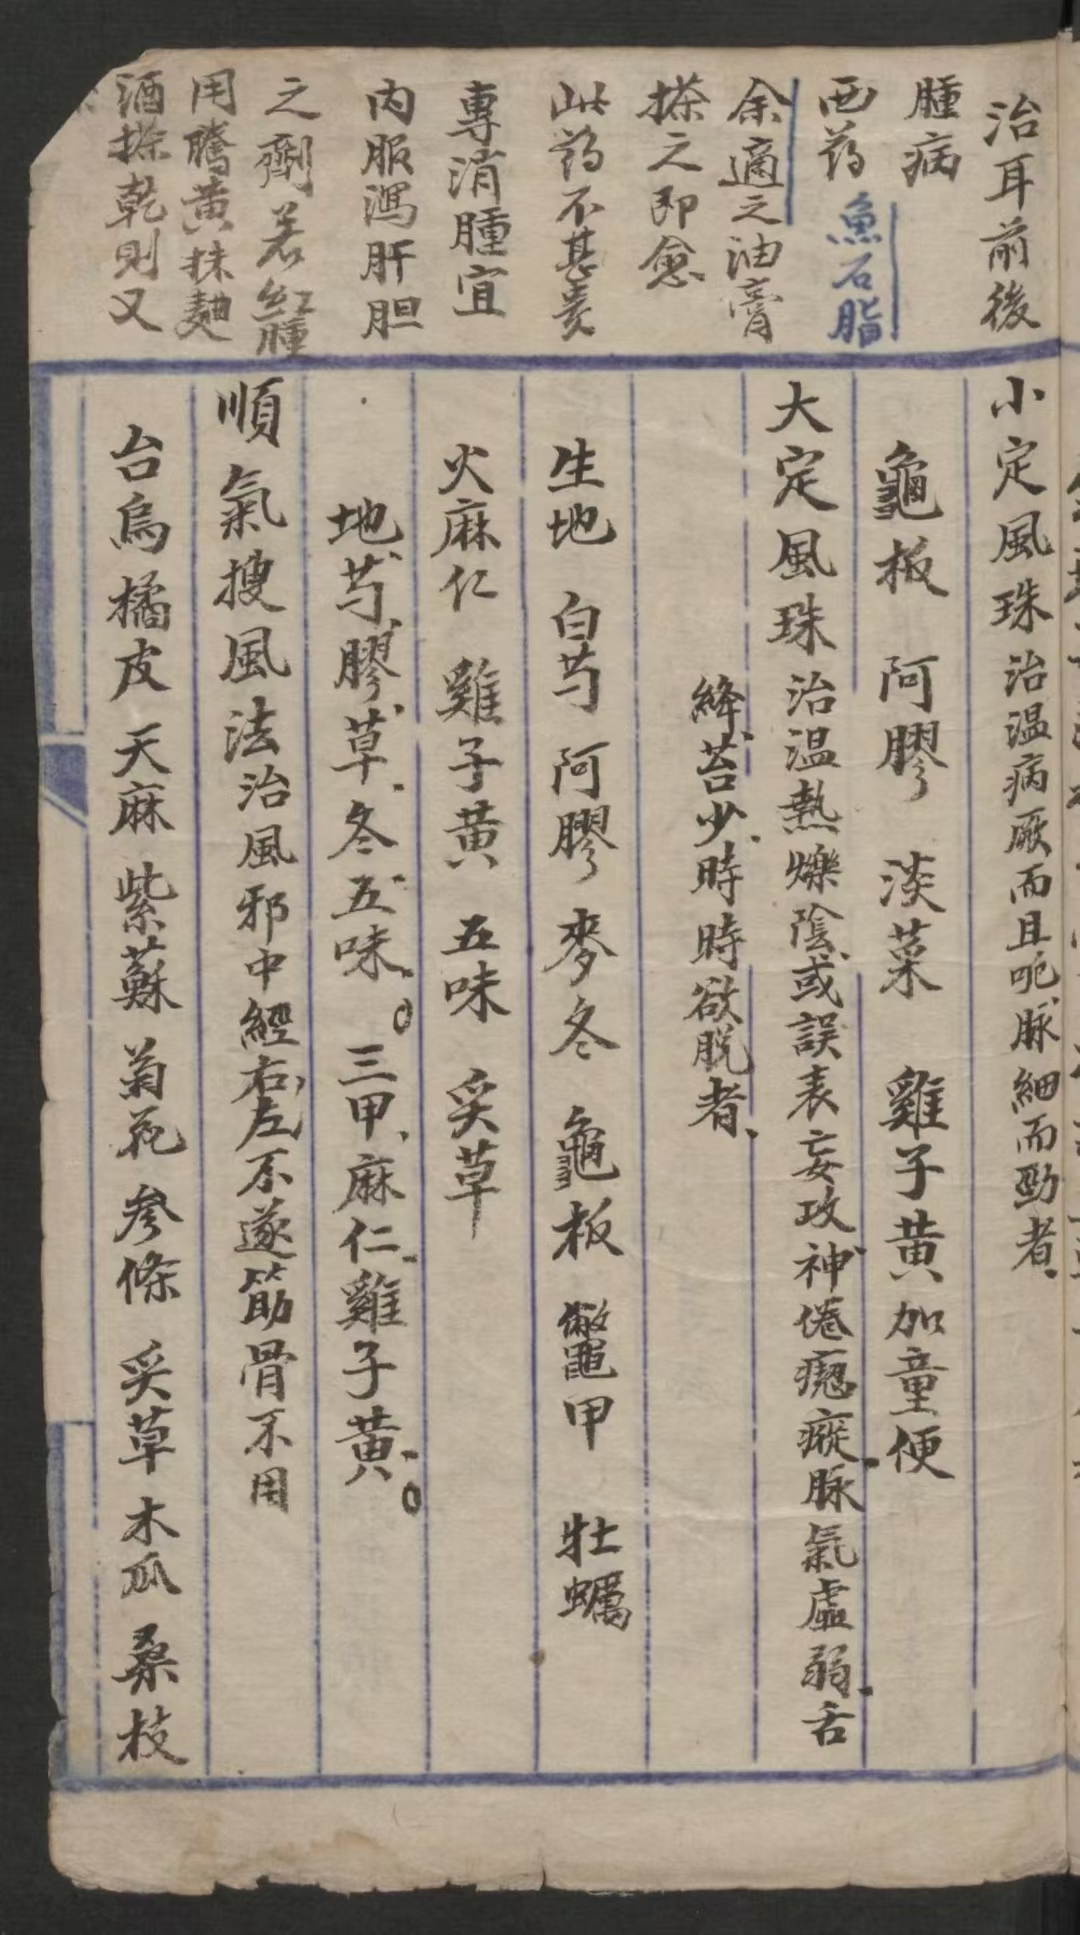 治耳前後
腫病
西药魚石脂
余適之油膏
搽之即愈
此药不甚貴
專消腫宜
内服瀉肝胆
之劑若紅腫
用騰黄抹麯
酒搽乾則又
小定風珠治温病厥而且呃脉細而勁者
龜板 阿膠 淡菜 雞子黄加童便
大定風珠治温熱爍陰或誤表妄攻神倦瘛瘲脉氣虛弱舌
絳苔少時時欲脱者
生地 白芍 阿膠 麥冬 龜板 鼈甲 牡蠣
火麻仁 雞子黄 五味 炙草
地芍膠草冬五味。三甲麻仁雞子黄。
順氣搜風法治風邪中經右左不遂筋骨不用
台烏 橘皮 天麻 紫蘇 菊花 參條 炙草 木瓜 桑枝